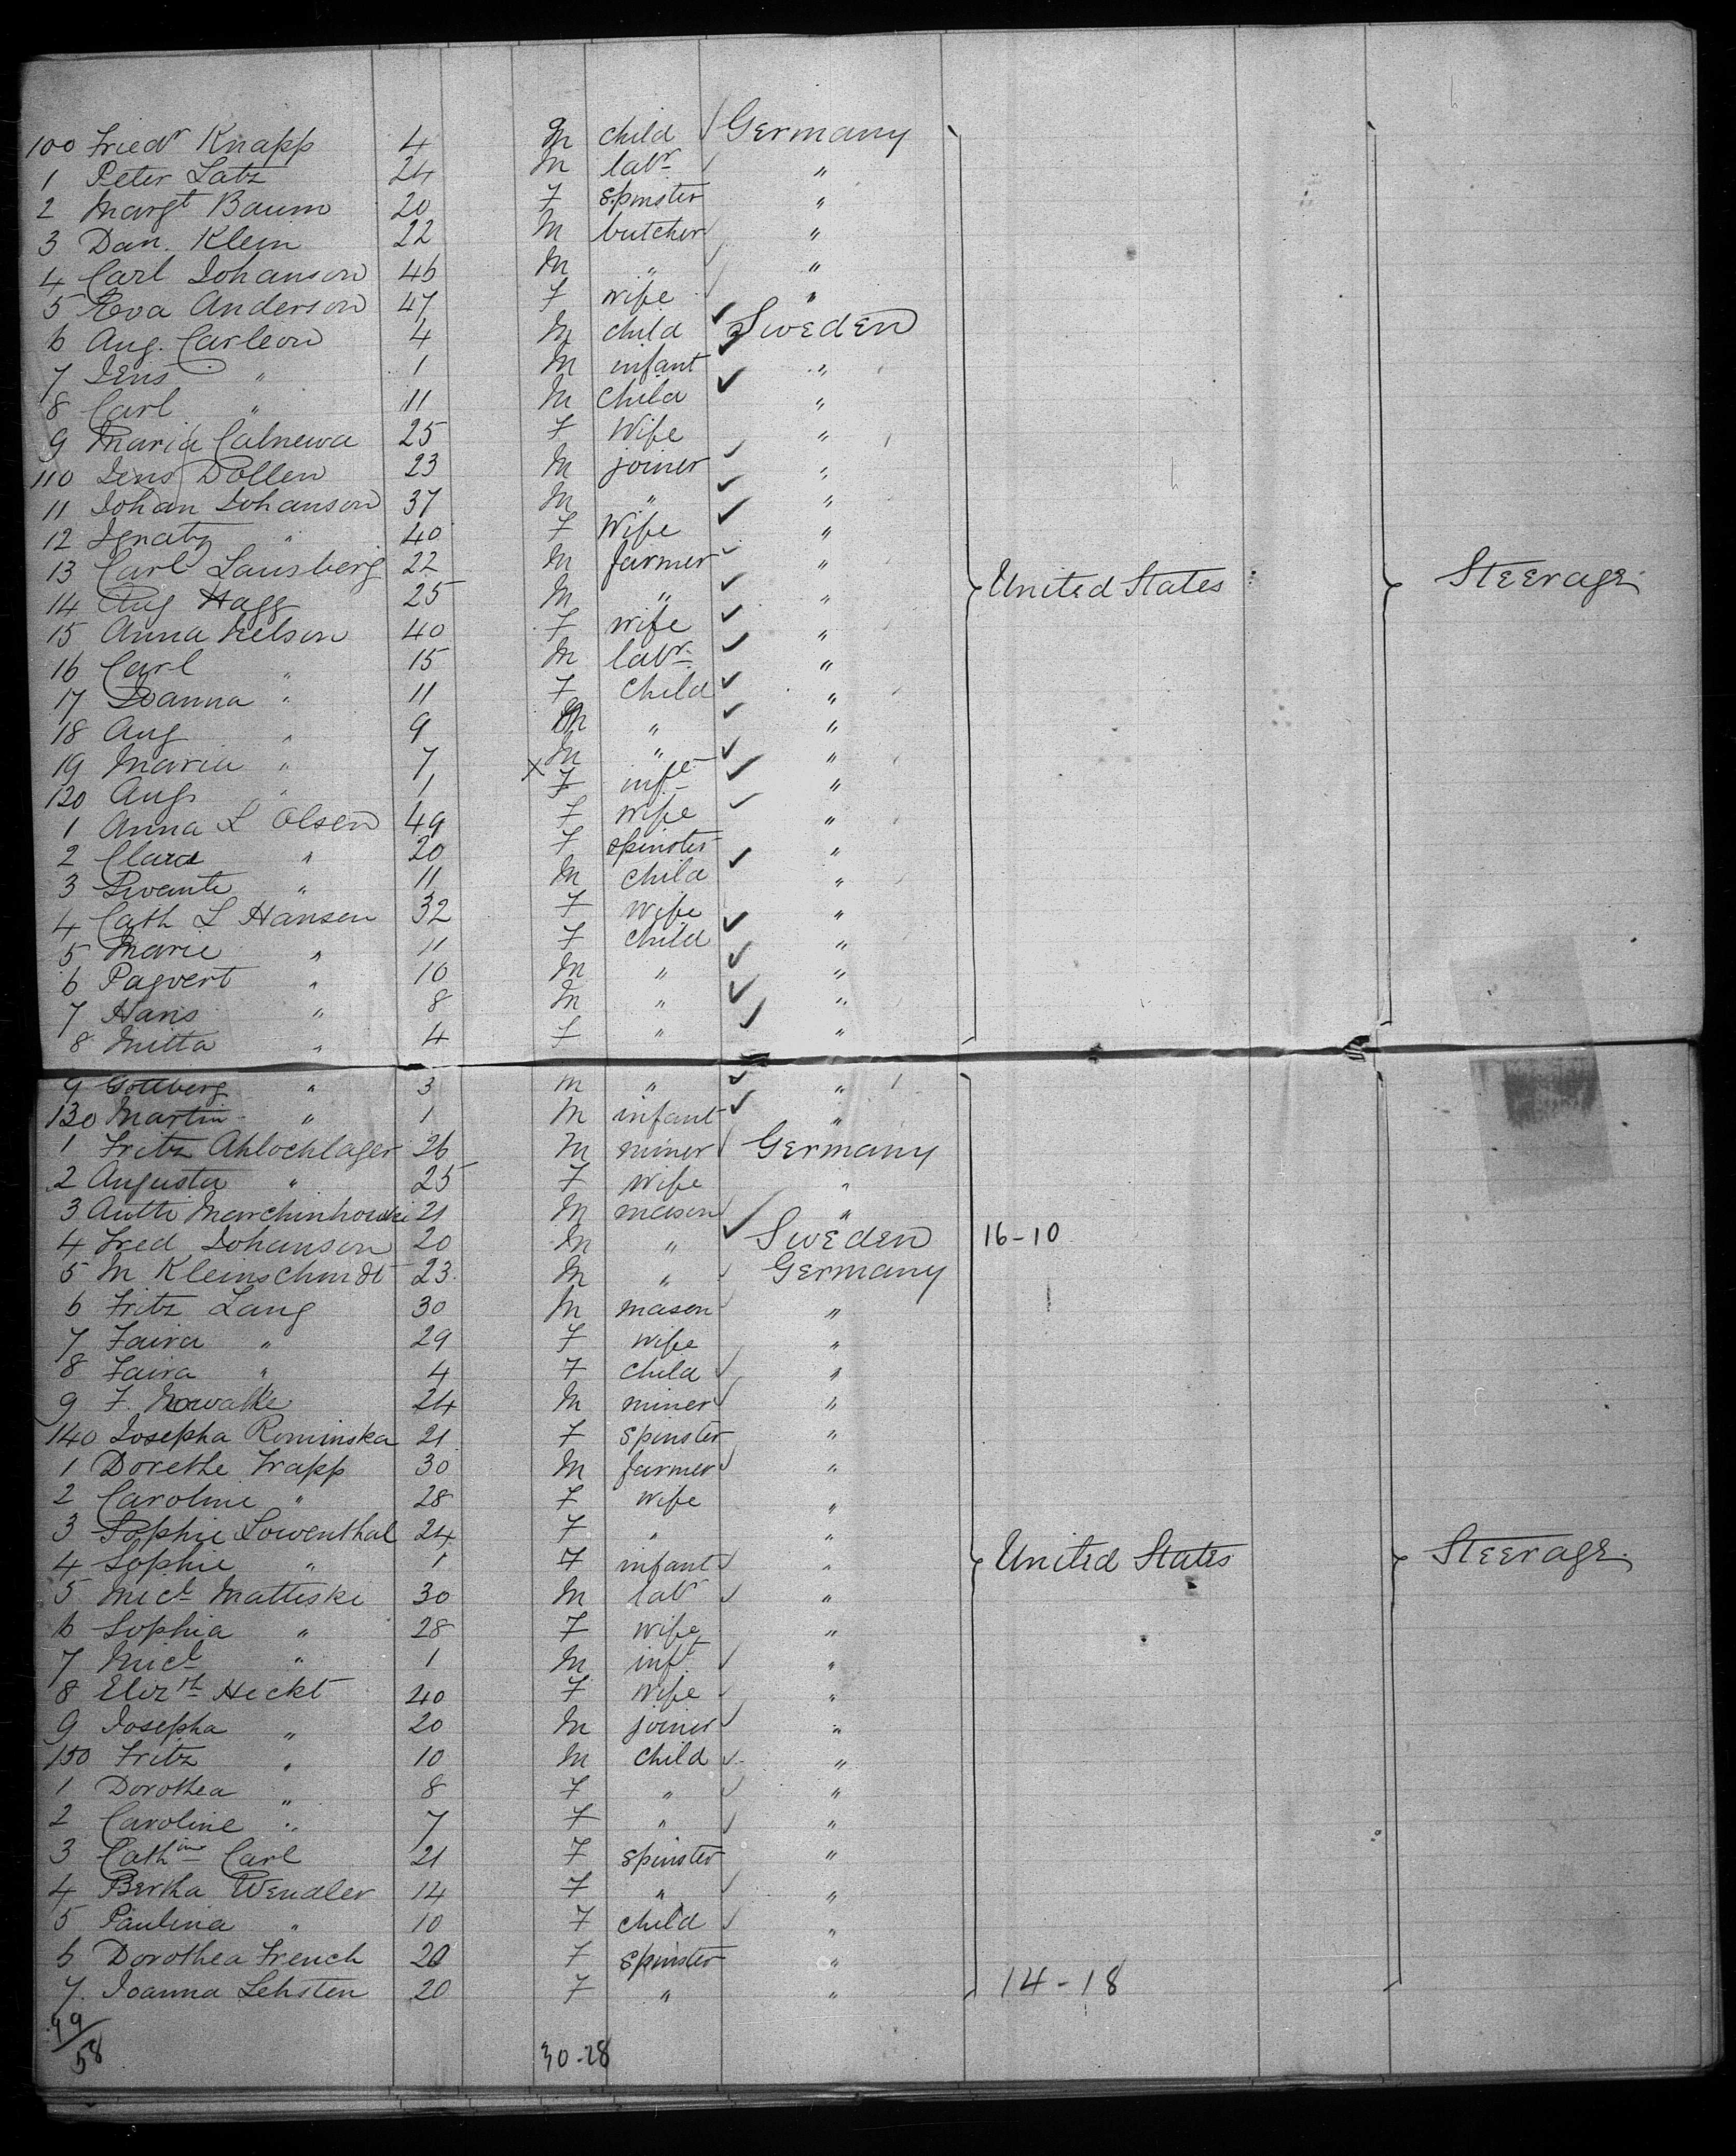 100 Friedr Knapp 4 M child Germany
1 Peter Latz 24 M labr "
2 Margt Baum 20 F spinster "
3 Dan. Klein 22 M butcher "
4 Carl Johanson 46 M " "
5 Eva Anderson 47 F wife "
6 Aug. Carleon 4 M child Sweden
7 Jens " 1 M infant "
8 Carl " 11 M Child "
9 Maria Calnewa 25 F Wife "
110 Jens Dollen 23 M joiner "
11 Johan Johanson 37 M " "
12 Ignatz " 40 F Wife "
13 Carl Lansberg 22 M farmer "
14 Aug Hagg 25 M " " United States Steerage
15 Anna Nelson 40 F wife "
16 Carl " 15 M labr "
17 Joanna " 11 F Child "
18 Aug " 9 M " "
19 Maria " 7 M " "
120 Aug " 1 X F inft "
1 Anna L Olsen 49 F wife "
2 Clara " 20 F spinster "
3 Swante " 11 M child "
4 Cath L Hansen 32 F wife "
5 Marie " 11 F child "
6 Pagvert " 10 M " "
7 Hans " 8 M " "
8 Mitta " 4 F " "
9 Gottberg " 3 M " "
130 Martin " 1 M infant "
1 Fritz Ahlochlager 26 M miner Germany
2 Augusta " 25 F wife "
3 21 M mason "
4 Fred Johanson 20 M " Sweden 16-10
5 M Kleinschmidt 23 M " Germany
6 Fritz Lang 30 M mason "
7 Faira " 29 F wife "
8 Faira " 4 F child "
9 F. Nowatke 24 M miner "
140 Josepha Rominska 21 F spinster "
1 Dorethe Trapp 30 M farmer "
2 Caroline " 28 F wife "
3 Sophie Lowenthal 24 F " "
4 Sophie " 1 F infant " United States Steerage.
5 Micl Mattiske 30 M labr "
6 Sophia " 28 F wife "
7 Micl " 1 M inft "
8 Elizth Heckt 40 F wife "
9 Josepha " 20 M joiner "
150 Fritz " 10 M child "
1 Dorothea " 8 F " "
2 Caroline " 7 F " "
3 Cathine Carl 21 F spinster "
4 Bertha Wendler 14 F " "
5 Paulina " 10 F child "
6 Dorothea French 20 F spinster "
7. Joanna Lehsten 20 F " " 14-18
99/58 30-28